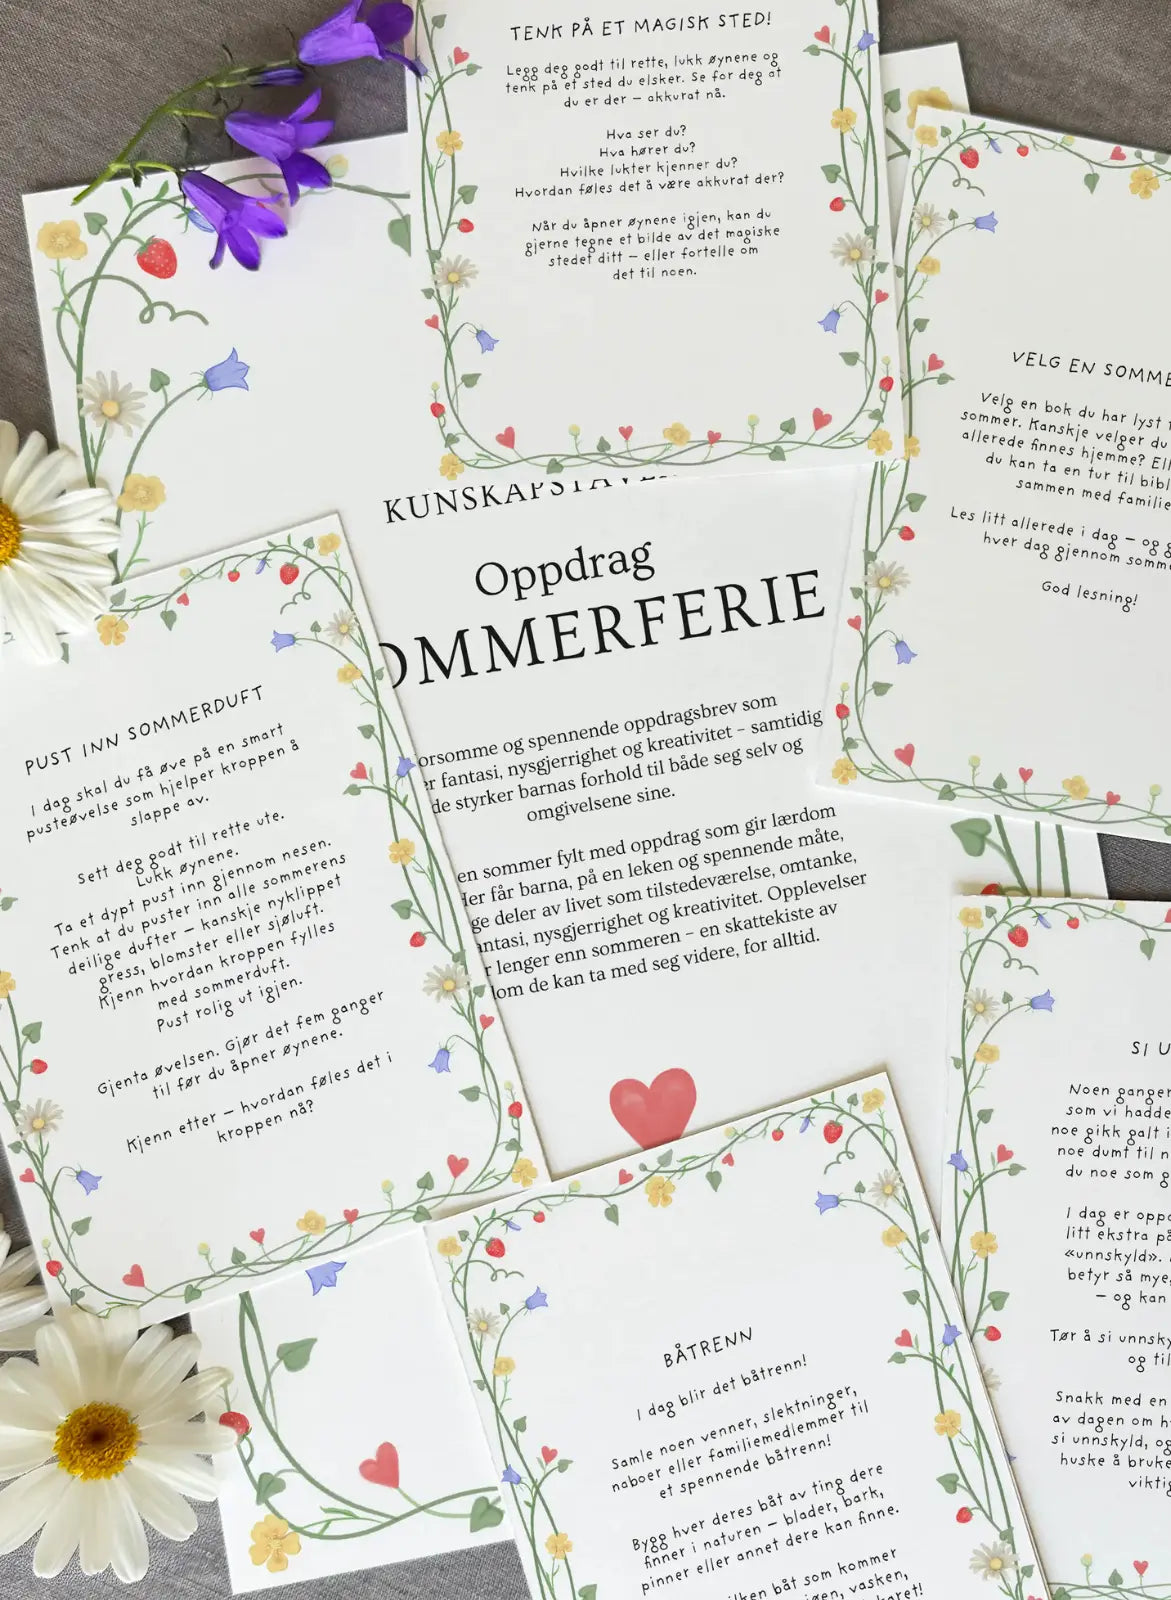 TENK PÅ ET MAGISK STED!
Legg deg godt til rette, lukk øynene og
tenk på et sted du elsker. Se for deg at
du er der – akkurat nå.
Hva ser du?
Hva hører du?
Hvilke lukter kjenner du?
Hvordan føles det å være akkurat der?
Når du åpner øynene igjen, kan du
gjerne tegne et bilde av det magiske
stedet ditt – eller fortelle om
det til noen.
VELG EN
Velg en bok du har lyst
sommer. Kanskje velger du
allerede finnes hjemme?
du kan ta en tur til
sammen med
Les litt allerede i dag – og
hver dag gjennom
God lesning!
Oppdrag
PUST INN SOMMERDUFT
I dag skal du få øve på en smart
pusteøvelse som hjelper kroppen å
slappe av.
Sett deg godt til rette ute.
Lukk øynene.
Ta et dypt pust inn gjennom nesen.
Tenk at du puster inn alle sommerens
deilige dufter – kanskje nyklippet
gress, blomster eller sjøluft.
Kjenn hvordan kroppen fylles
med sommerduft.
Pust rolig ut igjen.
Gjenta øvelsen. Gjør det fem ganger
til før du åpner øynene.
Kjenn etter – hvordan føles det i
kroppen nå?
og spennende oppdragsbrev som
fantasi, nysgjerrighet og kreativitet – samtidig
de styrker barnas forhold til både seg selv og
omgivelsene sine.
en sommer fylt med oppdrag som gir lærdom
får barna, på en leken og spennende måte,
deler av livet som tilstedeværelse, omtanke,
nysgjerrighet og kreativitet. Opplevelser
lenger enn sommeren – en skattekiste av
de kan ta med seg videre, for alltid.
SI
Noen ganger
som vi hadde
noe gikk galt i
noe dumt til
du noe som
I dag er
litt ekstra
«unnskyld».
betyr så mye,
– og kan
Tør å si
og
Snakk med en
av dagen om
si unnskyld,
huske å
BÅTRENN
I dag blir det båtrenn!
Samle noen venner, slektninger,
naboer eller familiemedlemmer til
et spennende båtrenn!
Bygg hver deres båt av ting dere
finner i naturen – blader, bark,
pinner eller annet dere kan finne.
båt som kommer
vasken,